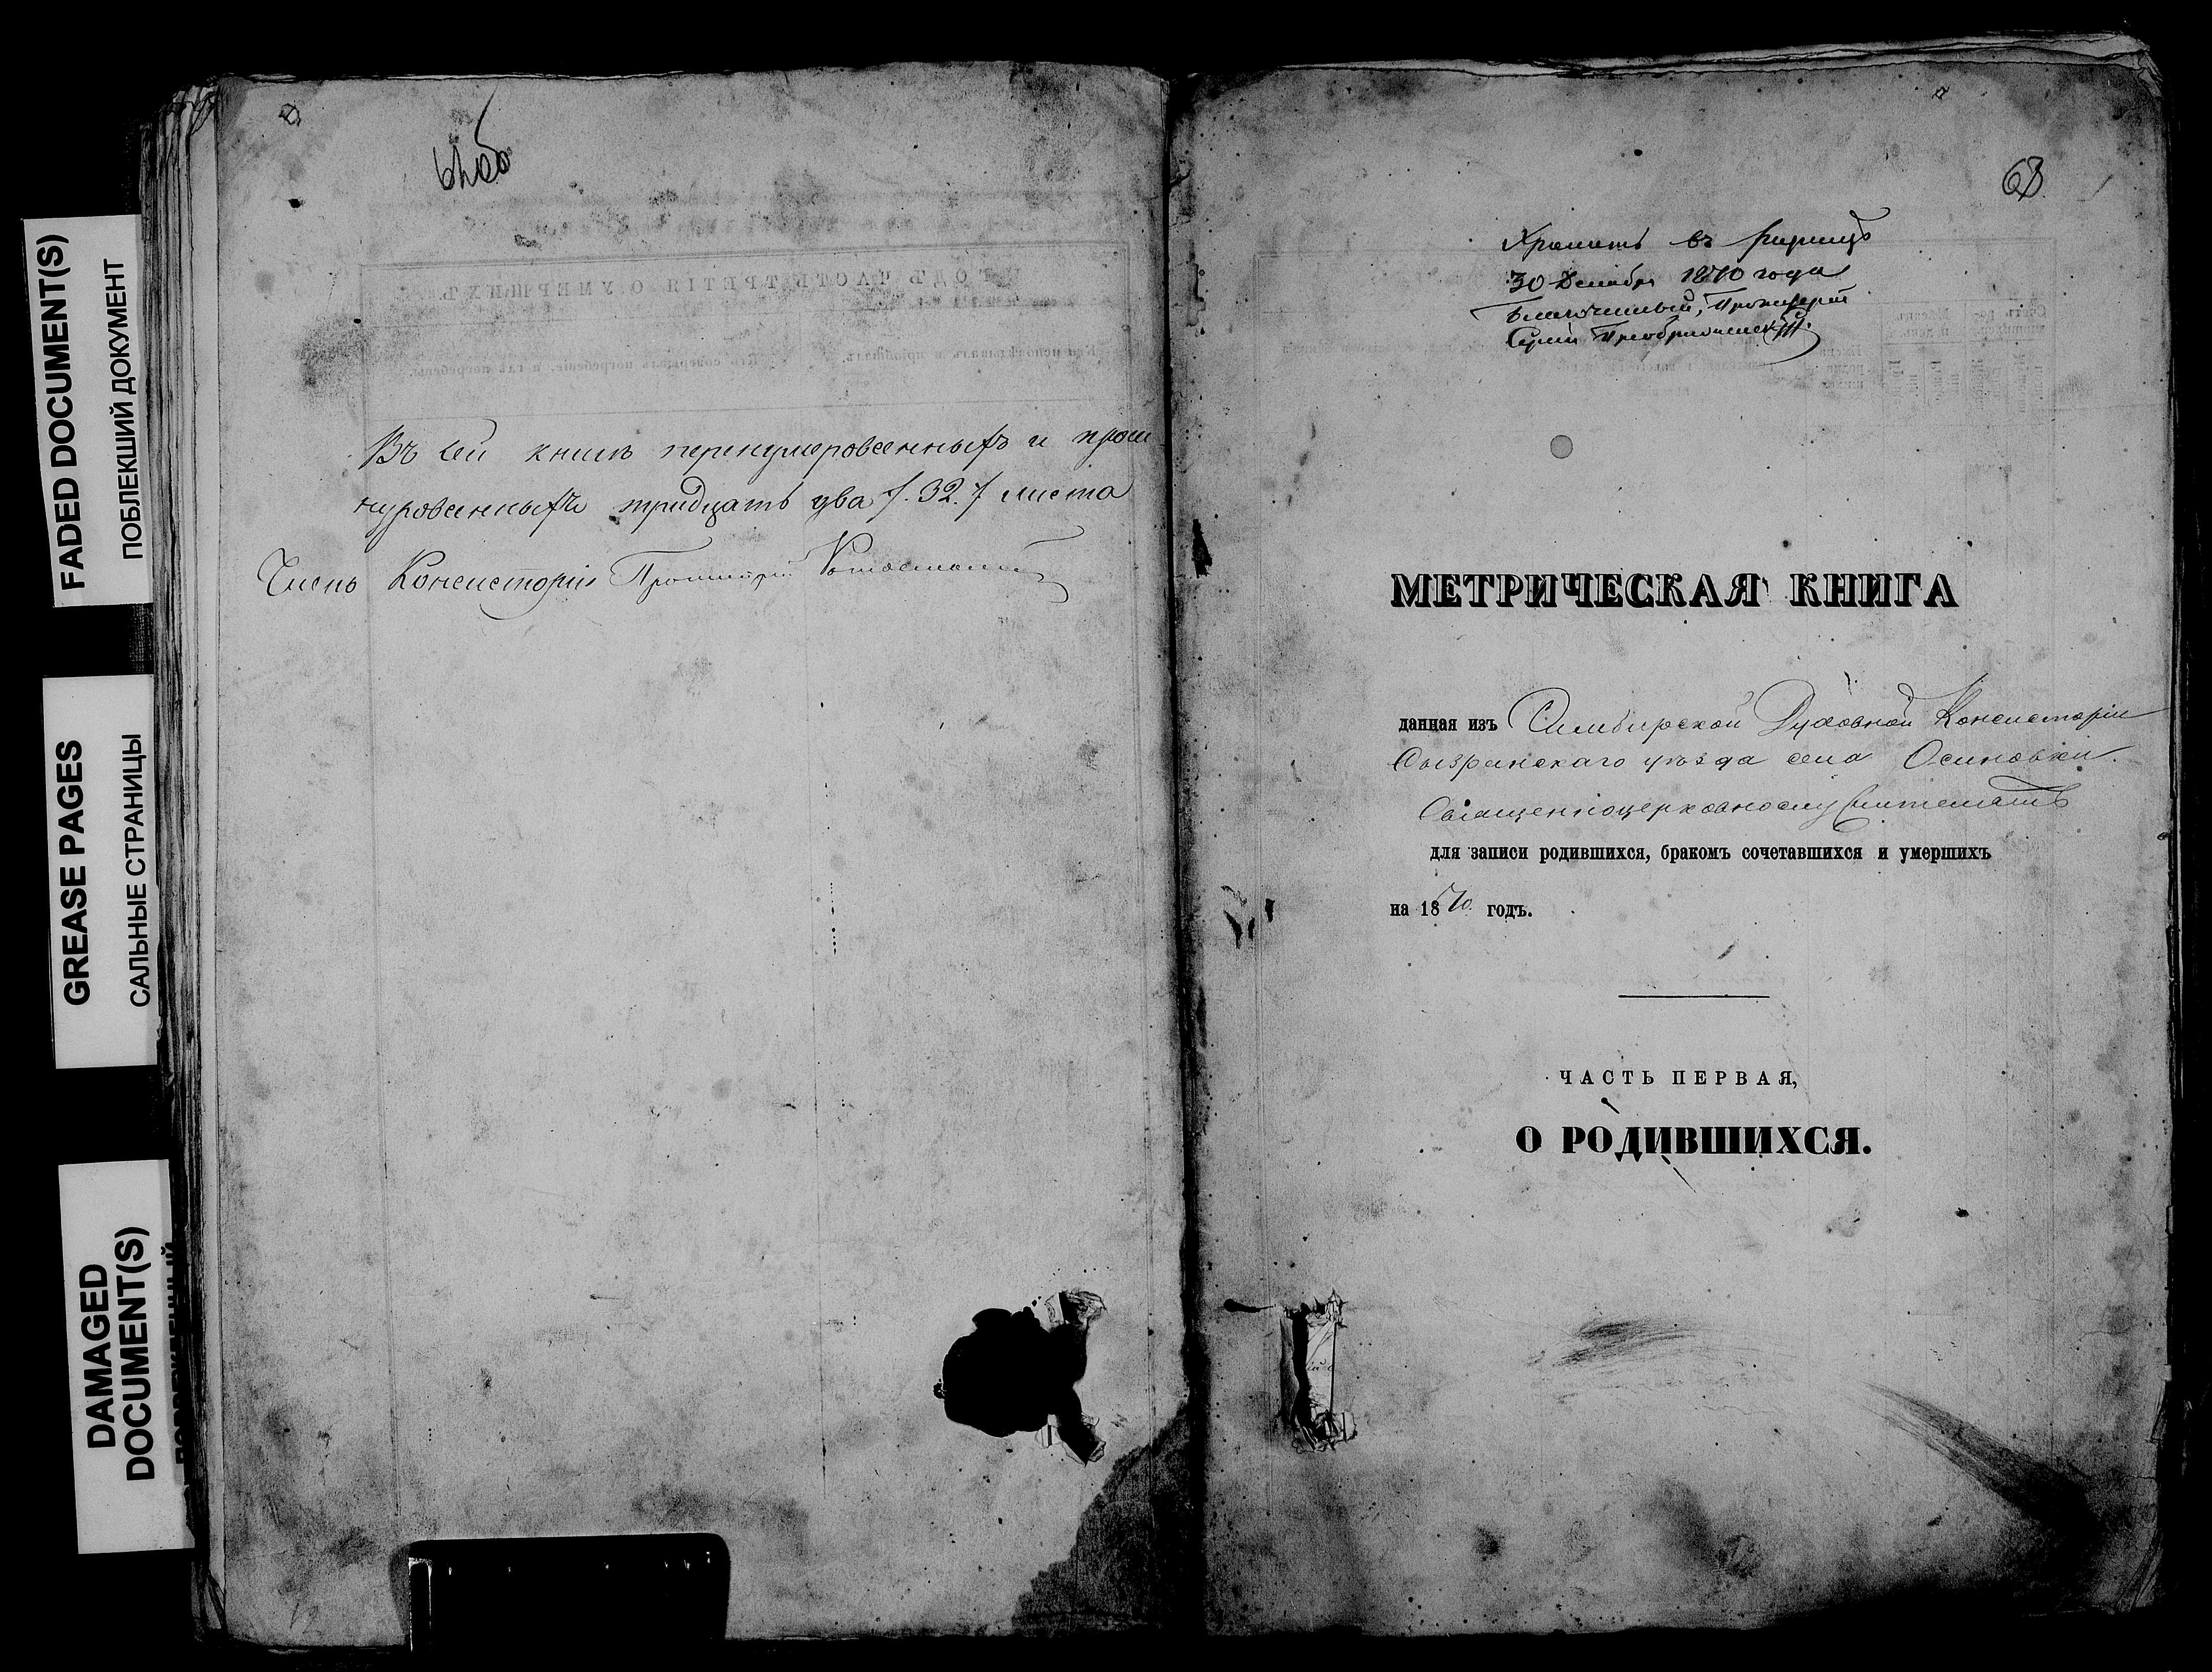 FADED DOCUMENT(S)
ПОБЛЕКШИЙ ДОКУМЕНТ
GREASE PAGES
САЛЬНЫЕ СТРАНИЦЫ
DAMAGED
DOCUMENT(S)
Въ сей книгѣ перенумерованныхъ и прош
нурованныхъ тридцать два /. 32. /. листа
Членъ Консисторіи Протоіерей
68
Хранить въ ризницѣ
30 Декабря 1870 года
Благочинный, Протоіерей
Преображенскій.
МЕТРИЧЕСКАЯ КНИГА
данная изъ Симбирской Духовной Консисторіи
Сызранскаго уѣзда села Осиновки.
Священноцерковнослужителямъ
для записи родившихся, бракомъ сочетавшихся и умершихъ
на 1870 годъ.
ЧАСТЬ ПЕРВАЯ,
О РОДИВШИХСЯ.